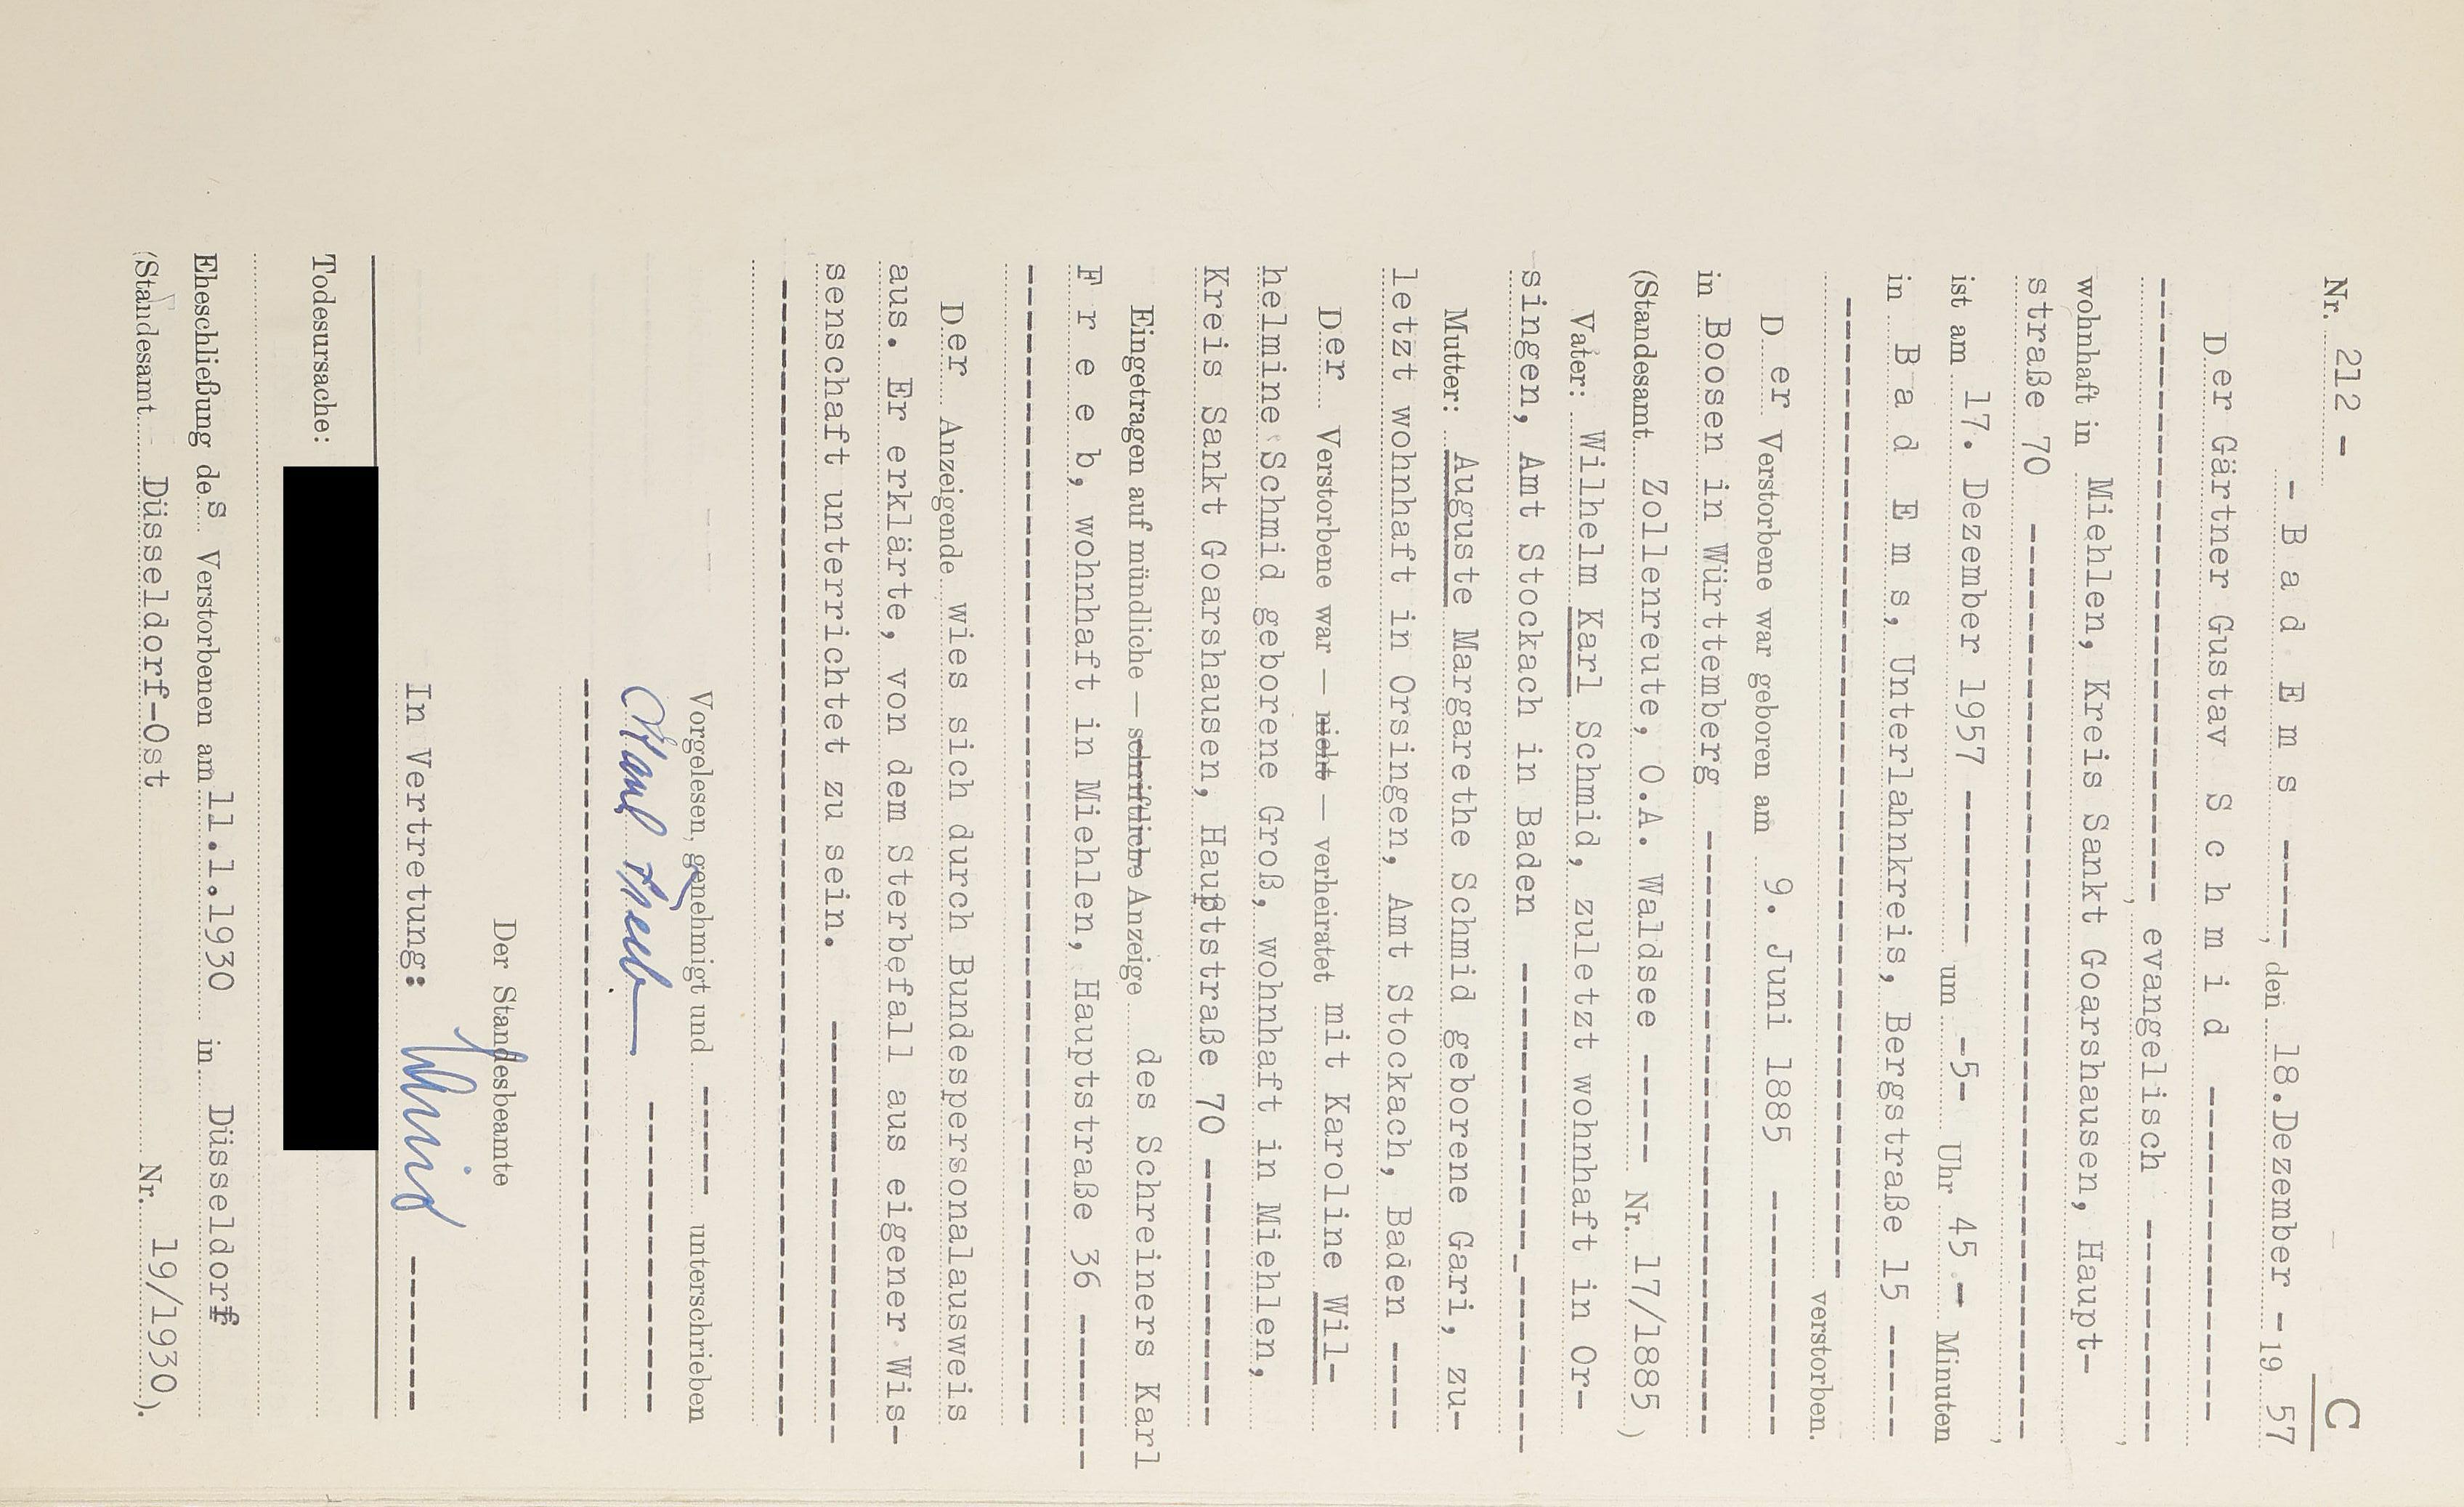 C
Nr. 212 -
- B a d E m s ----, den 18.Dezember - 19 57
Der Gärtner Gustav S c h m i d ----------
--------------------------, evangelisch --------,
wohnhaft in Miehlen, Kreis Sankt Goarshausen, Haupt-
straße 70 ------------------------------,
ist am 17. Dezember 1957 ------- um -5- Uhr 45 - Minuten
in B a d E m s, Unterlahnkreis, Bergstraße 15 -----
---------------------------------------- verstorben.
D er Verstorbene war geboren am 9. Juni 1885 ----------
in Boosen in Württemberg --------------------------
(Standesamt Zollenreute, O.A. Waldsee ----- Nr. 17/1885 )
Vater: Wilhelm Karl Schmid, zuletzt wohnhaft in Or-
singen, Amt Stockach in Baden --------------------
Mutter: Auguste Margarethe Schmid geborene Gari, zu-
letzt wohnhaft in Orsingen, Amt Stockach, Baden ----
Der Verstorbene war — nicht — verheiratet mit Karoline Wil-
helmine Schmid geborene Groß, wohnhaft in Miehlen,
Kreis Sankt Goarshausen, Hauptstraße 70 -----------
Eingetragen auf mündliche — schriftliche Anzeige des Schreiners Karl
F r e e b, wohnhaft in Miehlen, Hauptstraße 36 ------
--------------------------------------------------
Der Anzeigende wies sich durch Bundespersonalausweis
aus. Er erklärte, von dem Sterbefall aus eigener Wis-
senschaft unterrichtet zu sein. ------------------
--------------------------------------------------
Vorgelesen, genehmigt und ----- unterschrieben
Karl Freeb -------------
--------------------------------
Der Standesbeamte
In Vertretung: -------
Todesursache:
Eheschließung des Verstorbenen am 11.1.1930 in Düsseldorf
(Standesamt Düsseldorf-Ost Nr. 19/1930).